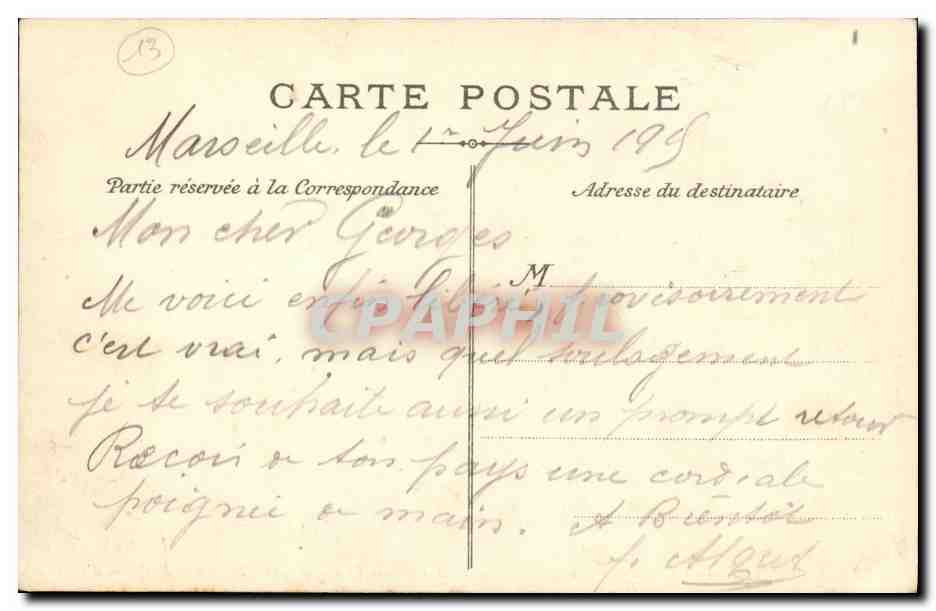 13
CARTE POSTALE
Marseille, le 1er Juin
Partie réservée à la Correspondance
Adresse du destinataire
Mon cher Georges
M
Me voici enfin libéré, provisoirement
CPAPHIL
c'est vrai, mais quel soulagement
je te souhaite aussi un prompt retour
Reçois de ton pays une cordiale
poignée de main. A Bientôt